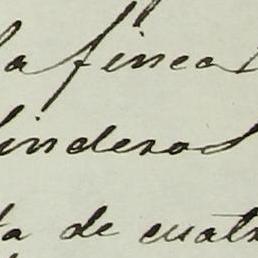 la finca
linderos
da de cuatr